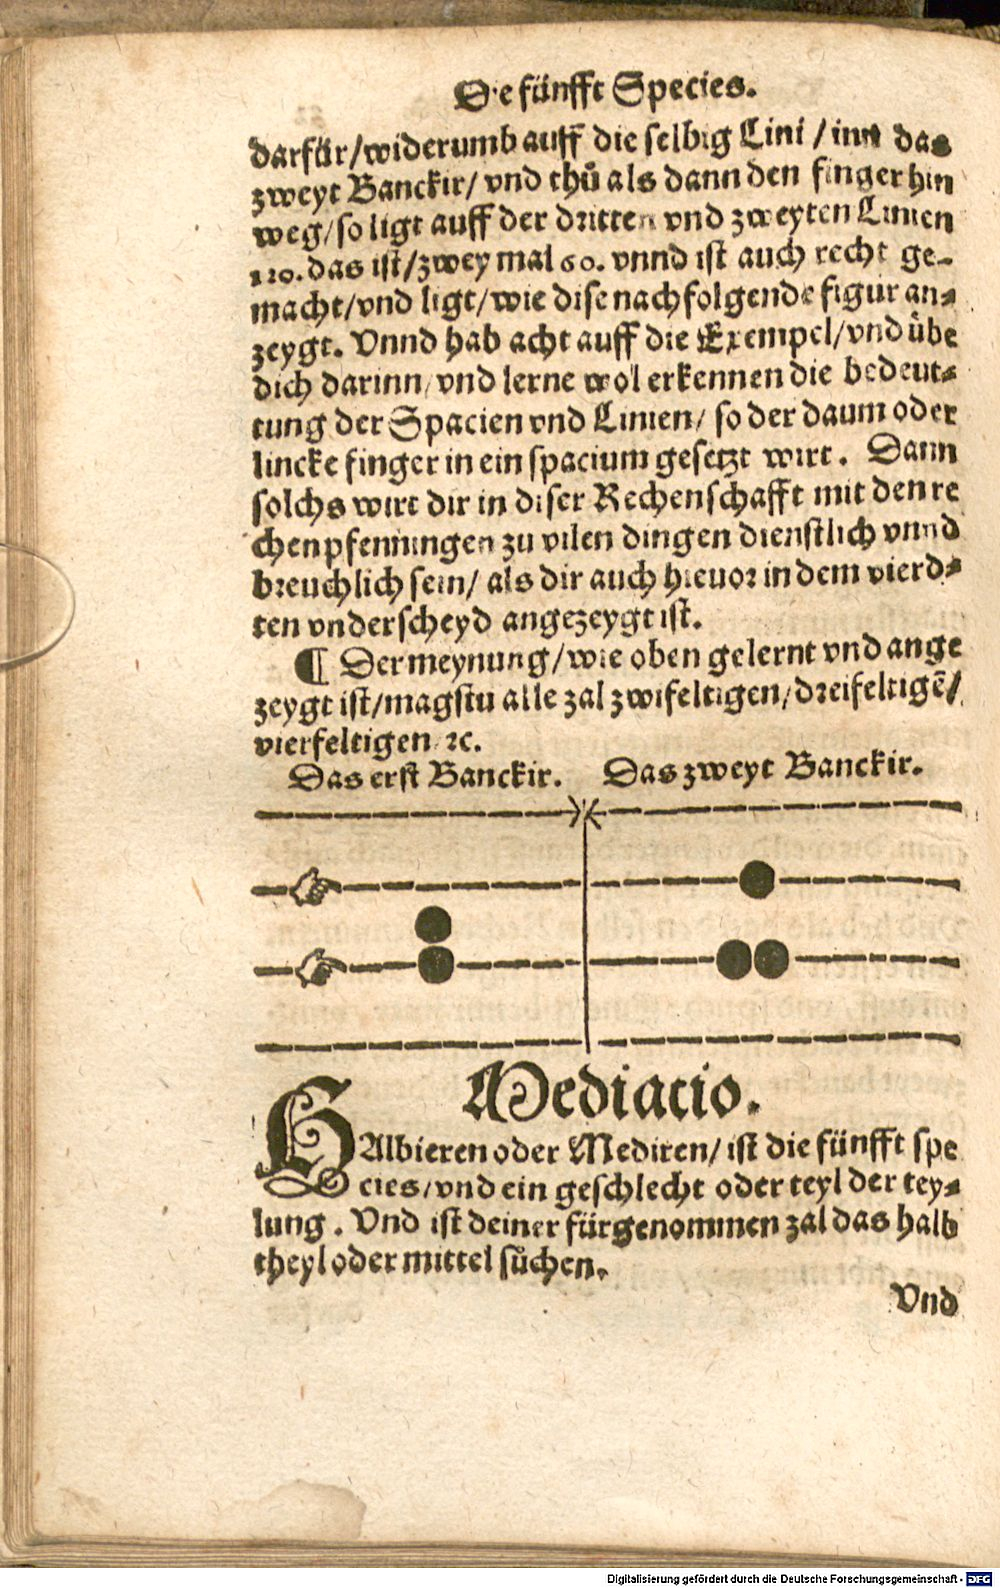 Die fünfft Species.
darfür/widerumb auff die selbig Lini/inn das
zweyt Banckir/vnd thů als dann den finger hin
weg/so ligt auff der dritten vnd zweyten Linien
120.das ist/zwey mal 60. vnnd ist auch recht ge-
macht/vnd ligt/wie dise nachfolgende figur an-
zeygt. Vnnd hab acht auff die Exempel/vnd übe
dich darinn/vnd lerne wol erkennen die bedeut-
tung der Spacien vnd Linien/ so der daum oder
lincke finger in ein spacium gesetzt wirt. Dann
solchs wirt dir in diser Rechenschafft mit den re
chenpfenningen zu vilen dingen dienstlich vnnd
breuchlich sein/ als dir auch hieuor in dem vierd-
ten vnderscheyd angezeygt ist.
¶ Der meynung/wie oben gelernt vnd ange
zeygt ist/magstu alle zal zwifeltigen/dreifeltigē/
vierfeltigen ꝛc.
Das erst Banckir. Das zweyt Banckir.
Mediacio.
HAlbieren oder Mediren/ ist die fünfft spe
cies/vnd ein geschlecht oder teyl der tey-
lung. Vnd ist deiner fürgenommen zal das halb
theyl oder mittel sůchen.
Vnd
Digitalisierung gefördert durch die Deutsche Forschungsgemeinschaft - DFG